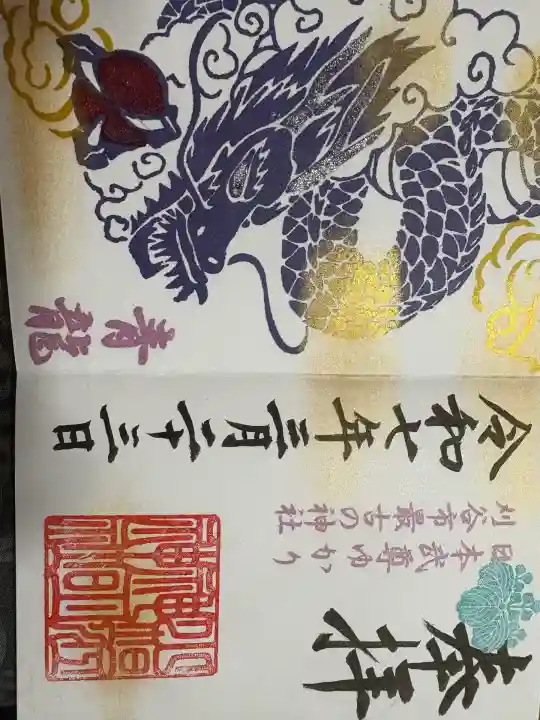 奉拝
日本武尊ゆかり
刈谷市最古の神社
令和七年三月二十二日
青龍